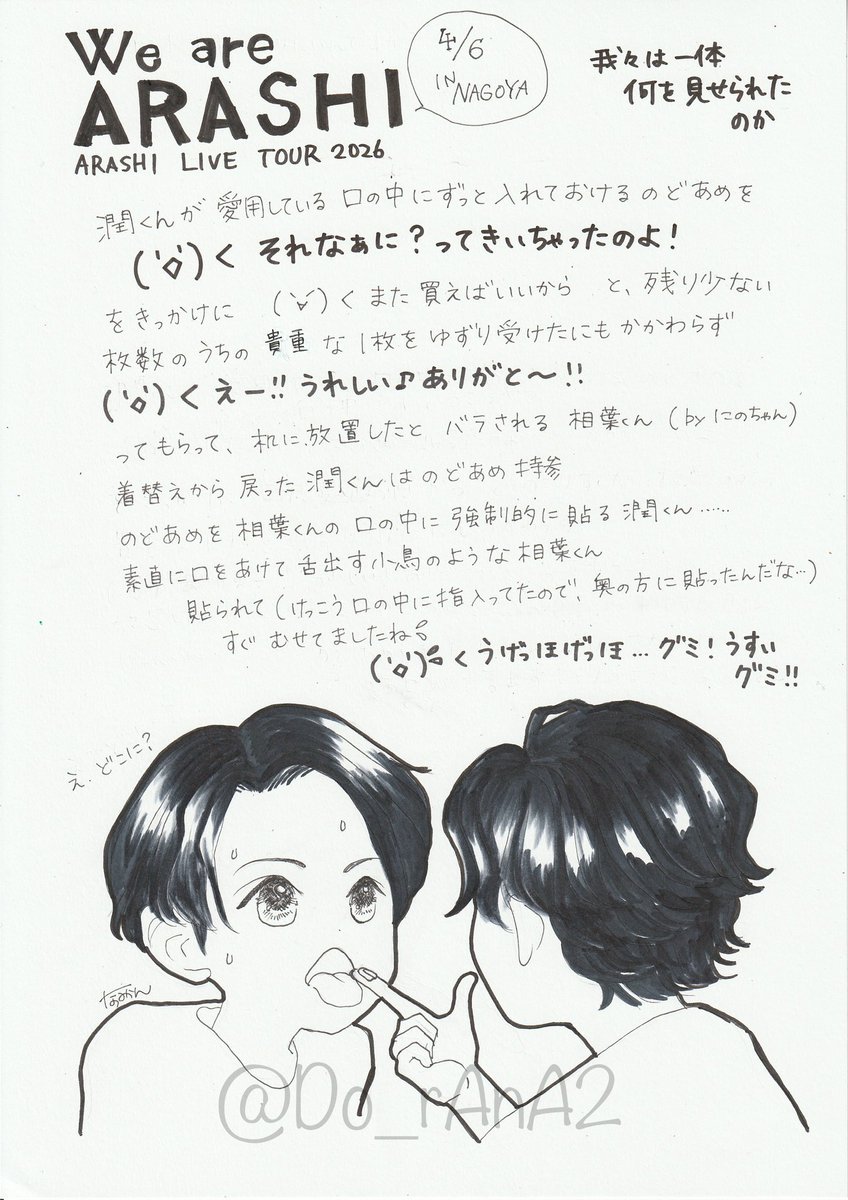 We are
ARASHI
ARASHI LIVE TOUR 2026
4/6
IN NAGOYA
我々は一体
何を見せられた
のか
潤くんが愛用している口の中にずっと入れておけるのどあめを
('◇')くそれなぁに?ってきいちゃったのよ!
をきっかけに ('ᵕ')くまた買えばいいから と、残り少ない
枚数のうちの貴重な1枚をゆずり受けたにもかかわらず
('◇')くえー!!うれしい♪ありがと〜!!
ってもらって、机に放置したとバラされる相葉くん(byにのちゃん)
着替えから戻った潤くんはのどあめ持参
のどあめを相葉くんの口の中に強制的に貼る潤くん……
素直に口をあけて舌出す小鳥のような相葉くん
貼られて(けっこう口の中に指入ってたので、奥の方に貼ったんだな…)
すぐむせてましたね
('◇')くうげっほげっほ…グミ!うすい
グミ!!
え、どこに?
なおみかん
@Do_rAnA2